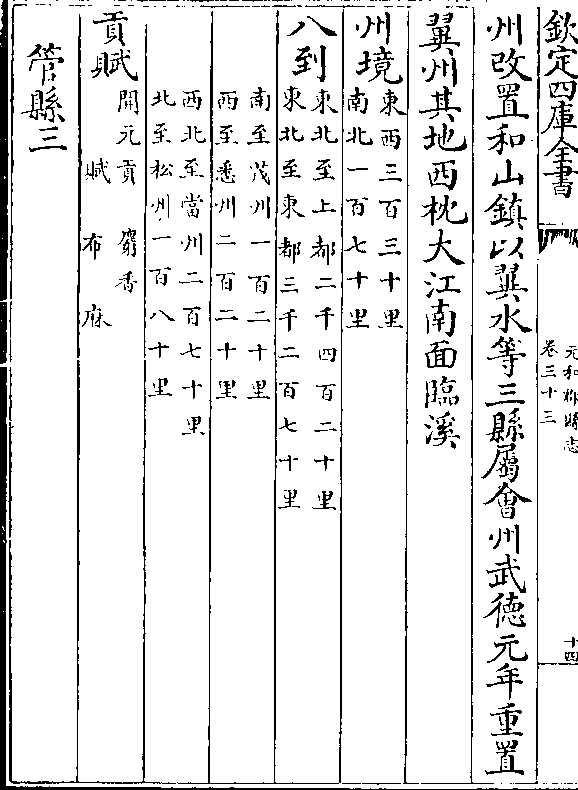 欽定四庫全書
元和郡縣志
卷三十三
十四
州改置和山鎮以翼水等三縣屬會州武徳元年重置
翼州其地西枕大江南面臨溪
州境
東西三百三十里
南北一百七十里
八到
東北至上都二千四百二十里
東北至東都三千二百七十里
南至茂州一百二十里
西至悉州二百二十里
西北至當州二百七十里
北至松州一百八十里
貢賦
開元貢
麝香
賦
布
麻
管縣三